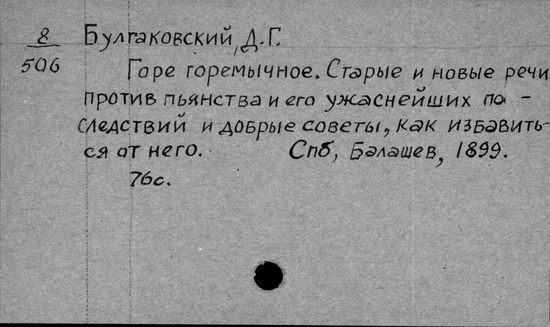 8 Булгаковский, Д.Г.
506 Горе горемычное. Старые и новые речи
против пьянства и его ужаснейших по-
следствий и добрые советы, как избавить-
ся от него. Спб, Балашев, 1899.
76с.